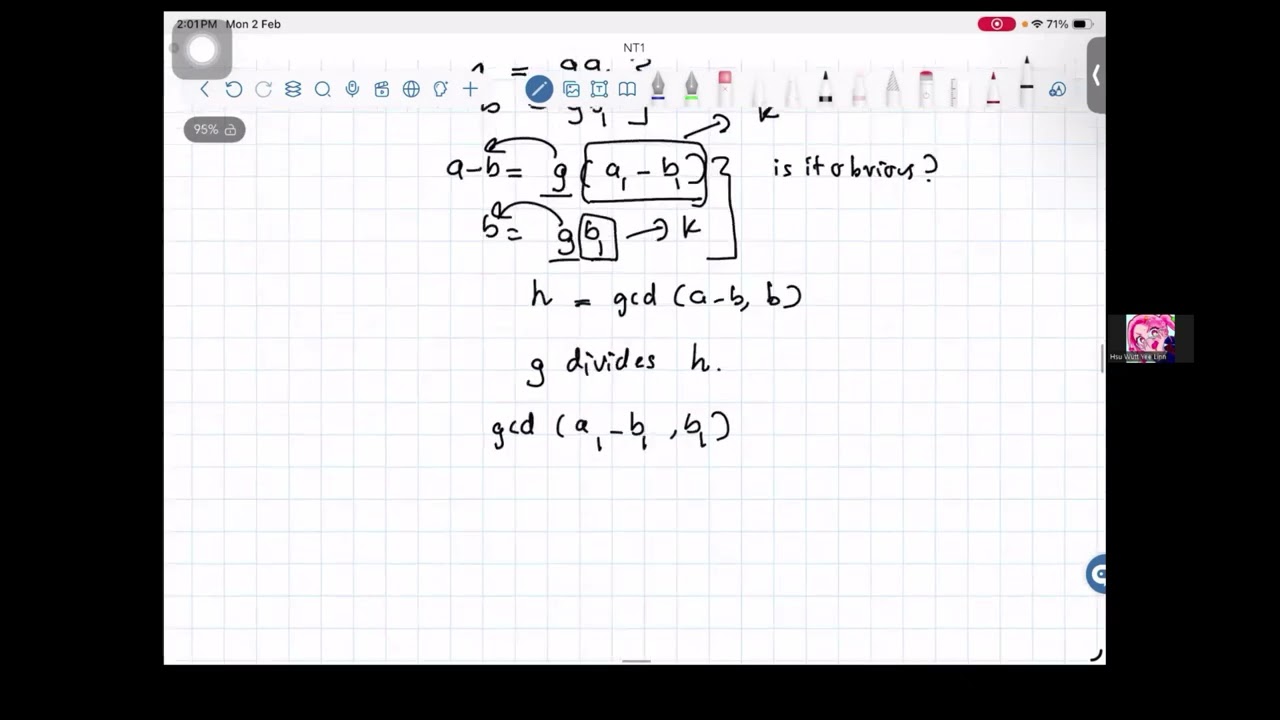 2:01PM Mon 2 Feb
71%
NT1
95%
K
a-b = g (a₁ - b₁) is it obvious?
b = g b₁ → K
h = gcd (a-b, b)
g divides h.
gcd (a₁ - b₁, b₁)
Hsu Wutt Yee Linn